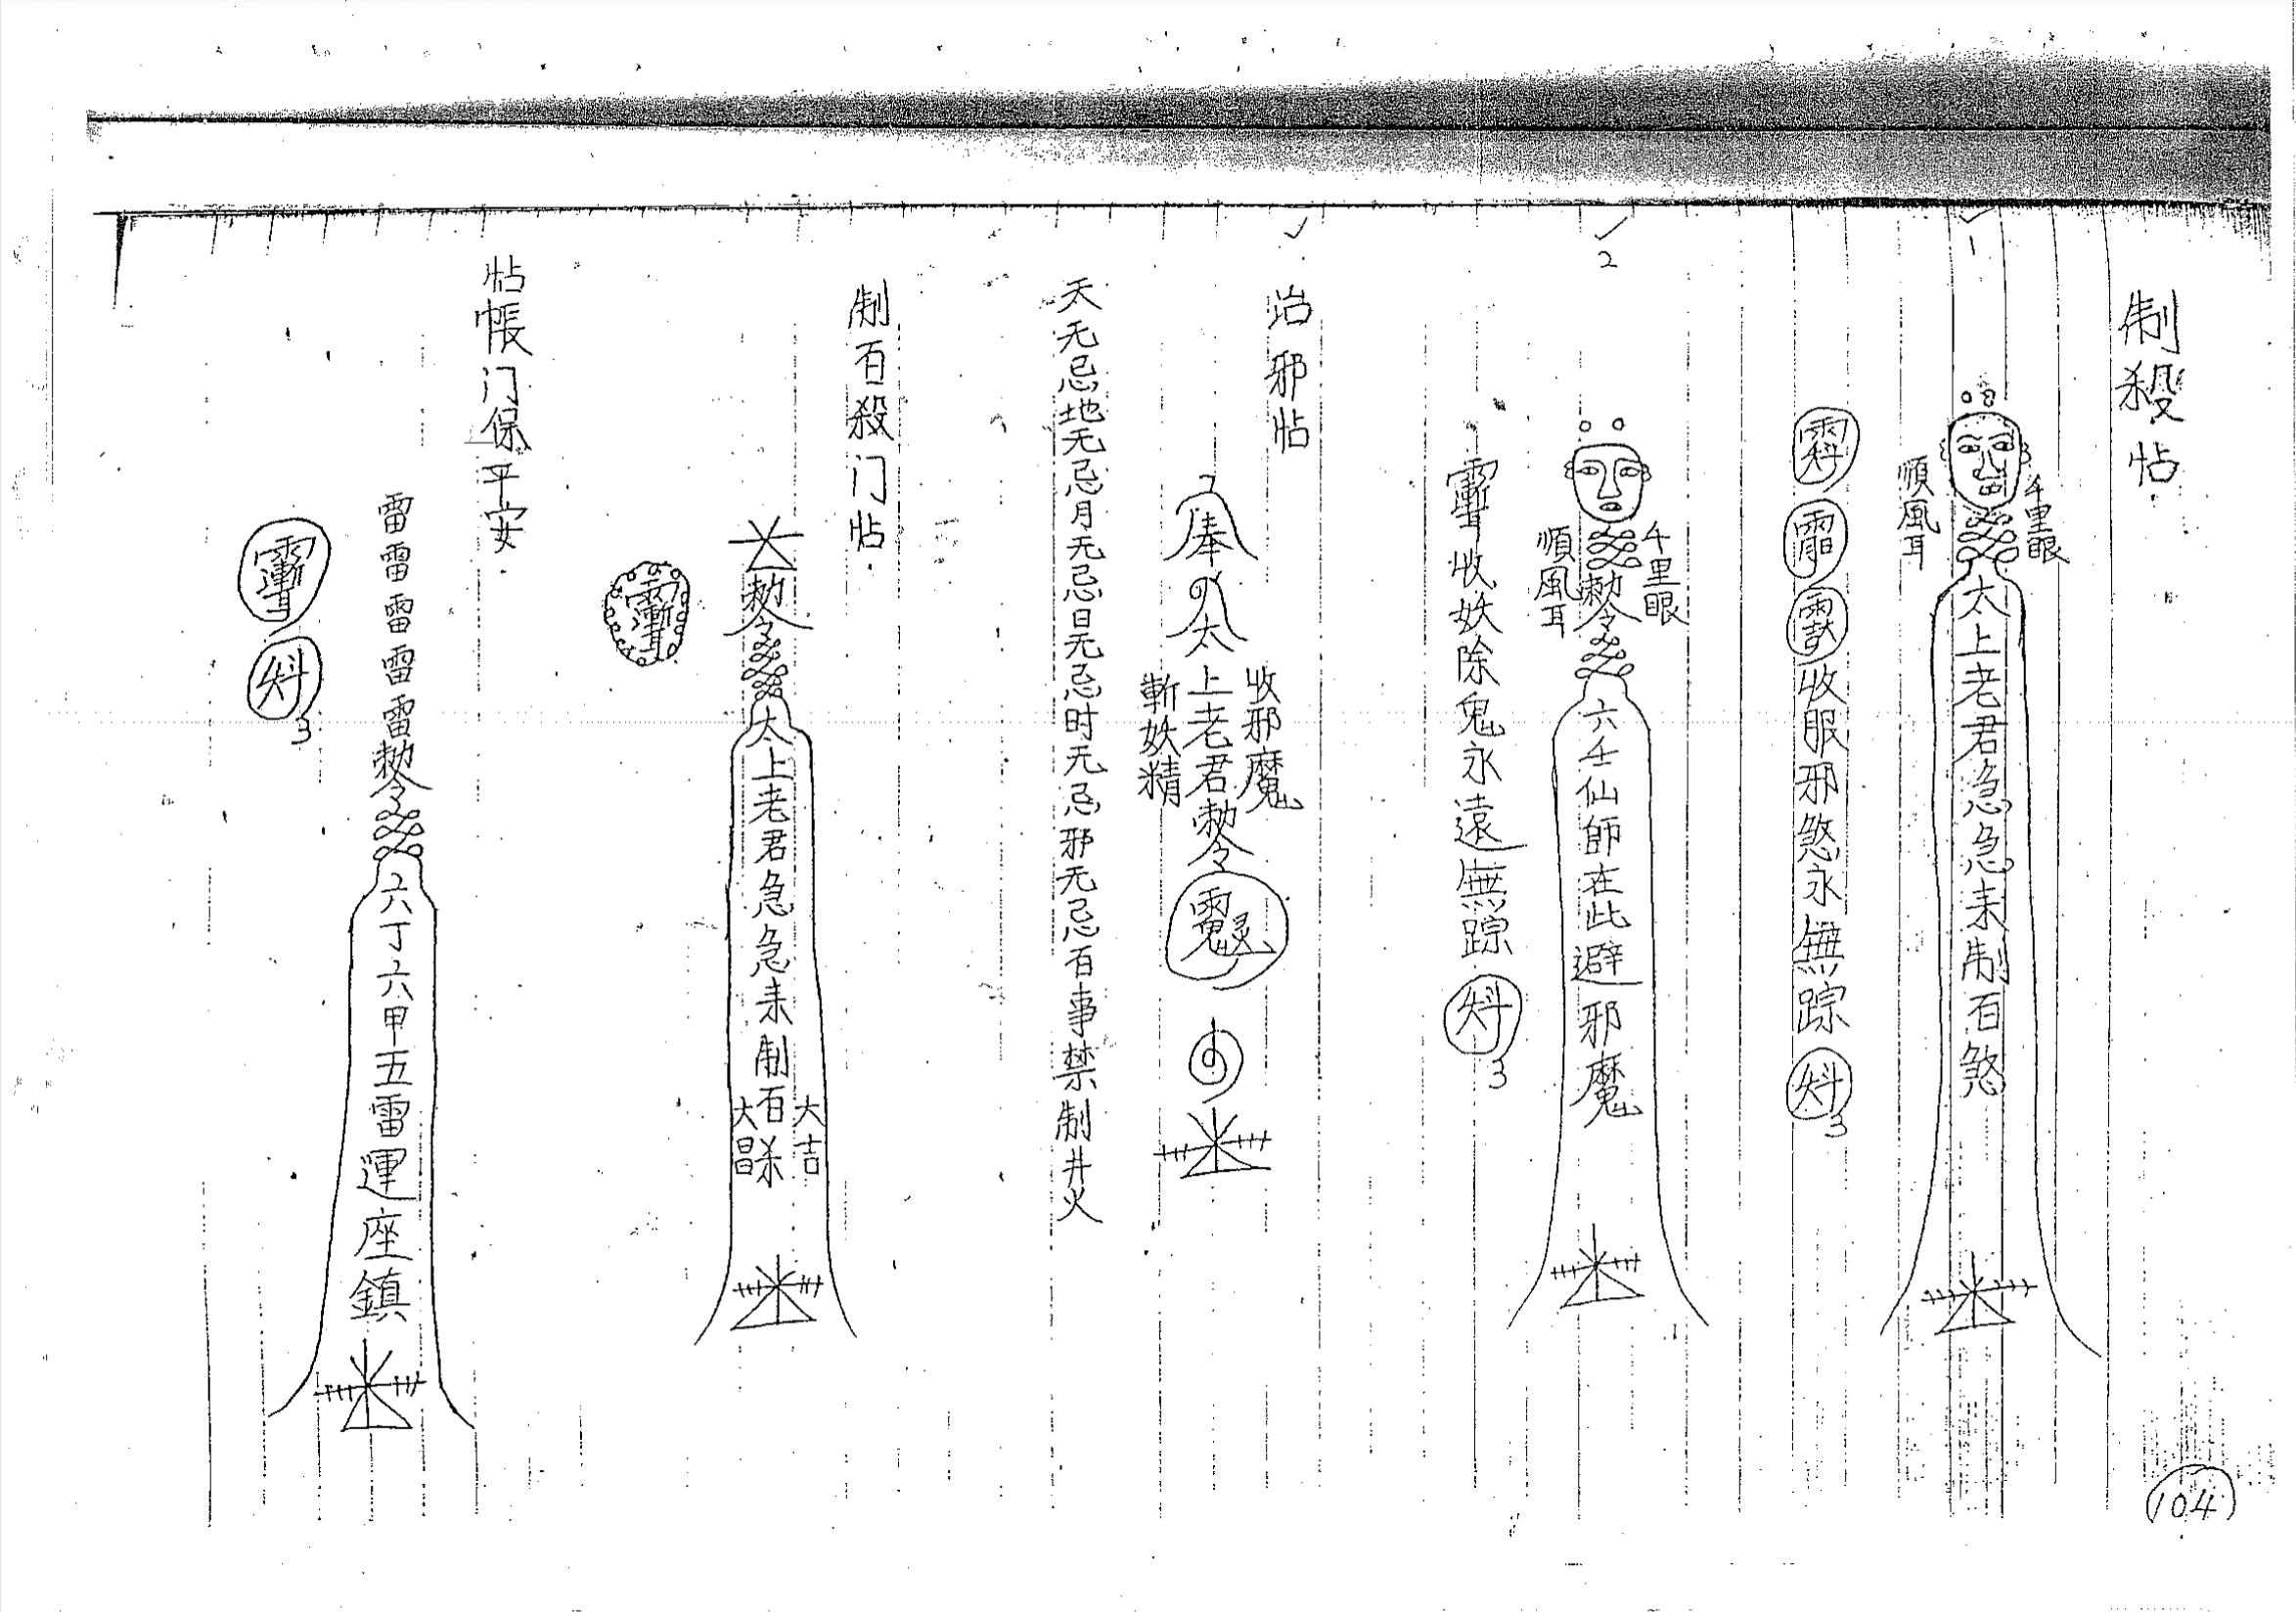 制殺帖
1
千里眼
太上老君急急来制百煞
順風耳
收服邪煞永無踪
3
2
千里眼
勅令
六壬仙師在此避邪魔
順風耳
收妖除鬼永遠無踪
3
治邪帖
收邪魔
奉
太上老君勅令
斬妖精
天无忌地无忌月无忌日无忌时无忌邪无忌百事禁制井火
制百殺门帖
勅令
太上老君急急来制百杀
大吉
大昌
帖帳门保平安
雷雷雷雷雷勅令
六丁六甲五雷運座鎮
3
104